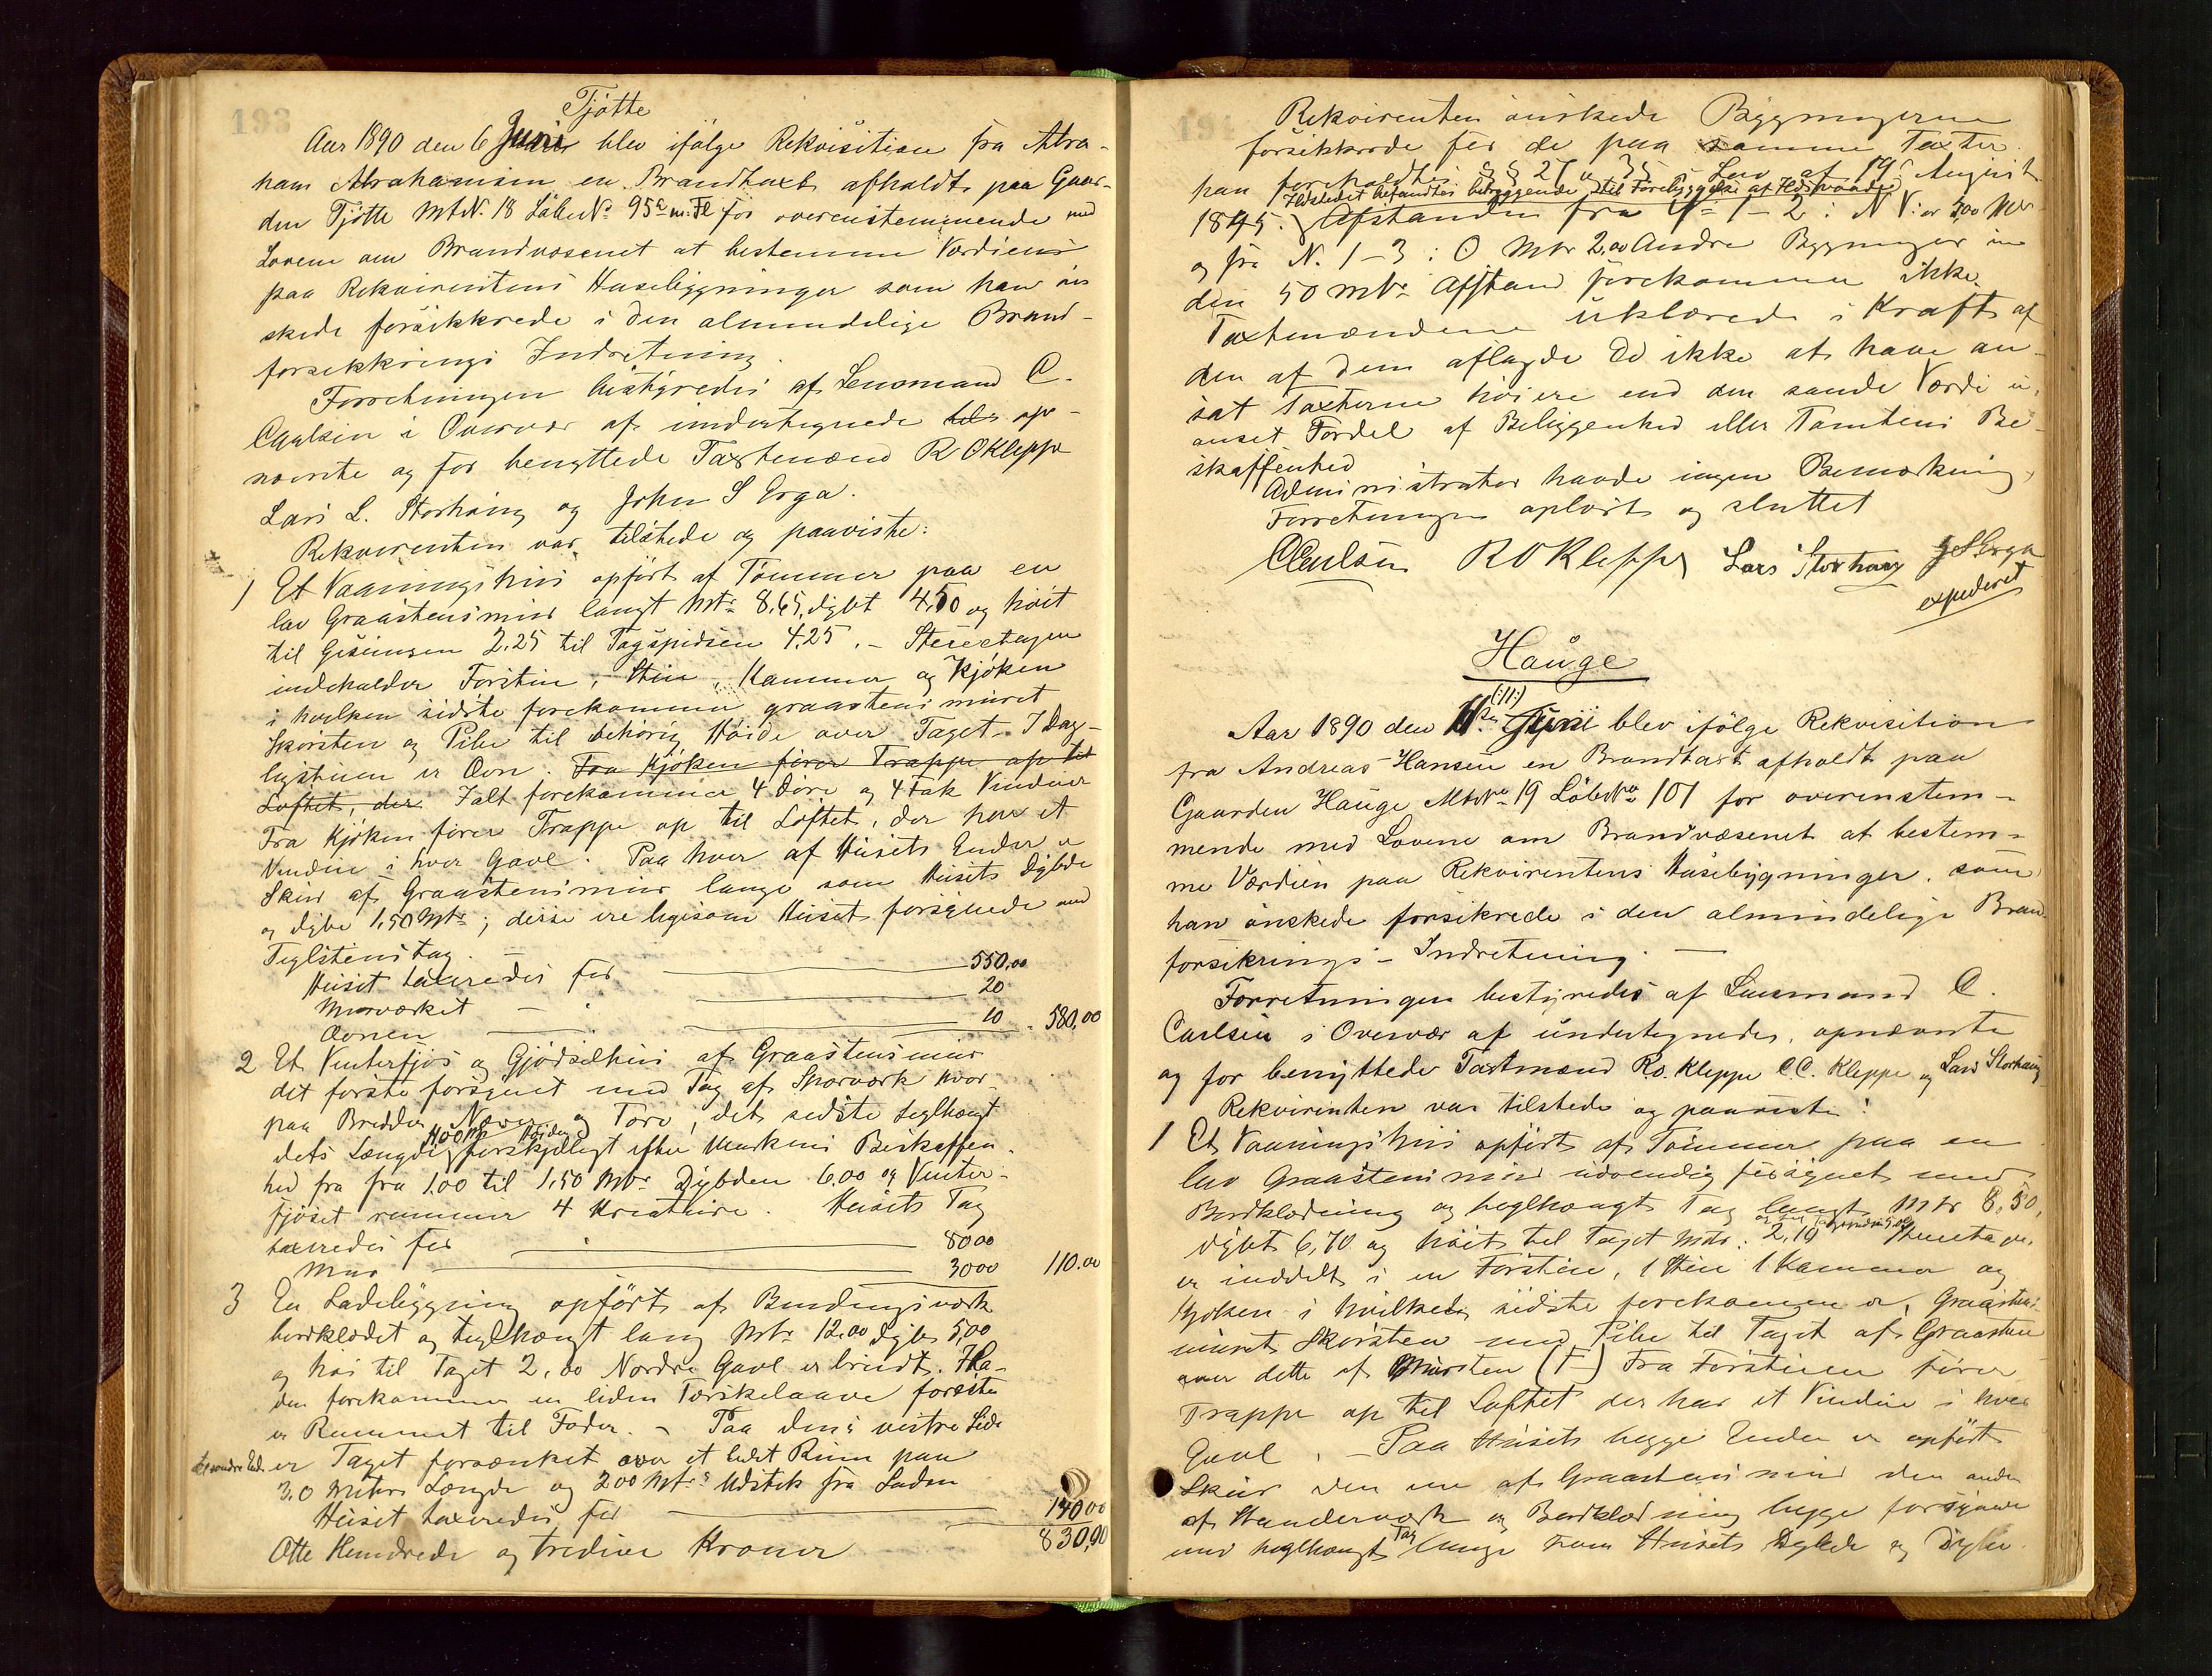 193
Tjøtte
Aar 1890 den 6 Juni blev ifølge Rekvisition fra Abra-
ham Abrahamsen en Brandtaxt afholdt paa Gaar-
den Tjøtte MtN. 18 LøbeNo 95a m. Fl for overenstemmende med
Lovene om Brandvæsenet at bestemme Værdiens
paa Rekvirentens Husebygninger som han øn
skede forsikkrede i den almindelige Brand-
forsikkrings Indretning.
Forretningen bestyredes af Lensmand C.
Carlsen i Overvær af undertegnede op-
nævnte og for benyttede Taxtmænd R O Kleppe
Lars L. Storhaug og John S Erga.
Rekvirenten var tilstede og paaviste:
1 Et Vaaningshus opført af Tømmer paa en
lav Graastensmur langt Mtr 8,65, dybt 4,50 og høit
til Gesimsen 2,25 til Tagspidsen 4,25. - Stueetagen
indeholder Forstue, Stue, Kammer og Kjøken
i hvilken sidste forekommer graastensmuret
Skorsten og Pibe til behørig Høide over Taget. I Dag-
ligstuen er Ovn. Fra Kjøken fører Trappe op til
Loftet, der Ialt forekommer 4 Døre og 4 Fak Vinduer
Fra Kjøken fører Trappe op til Loftet, der har et
Vindue i hver Gavl. Paa hver af Husets Ender er
Skur af Graastensmur lange som Husets Dybde
og dybe 1,50 Mtr; disse ere ligesom Huset forsynede med
Teglstenstag. -
Huset taxeredes for 550,00
Murværket - 20
Ovnen 10 580,00
2 Et Vinterfjøs og Gjødselhus af Graastensmur
det første forsynet med Tag af Sparværk hvor-
paa Bredder Næver og Torv, det sidste teglhængt
dets Længde 4,00 M Høiden forskjeligt efter Markens Beskaffen-
hed fra fra 1,00 til 1,50 Mtr Dybden 6,00 og Vinter-
fjøset rummer 4 Kreature. Husets Tag
taxeredes for 8000
Mur 3000 110,00
3 En Ladebygning opført af Bindingsværk
bordklædet og teglhængt lang Mtr 12,00 dyb 5,00
og høi til Taget 2,00 Nordre Gavl er brudt. I La-
den forekommer en liden Tærskelaave forøvr
er Rummet til Foder. - Paa dens vestre Side
er Taget forsænket over et lidet Rum paa
3,0 Meters Længde og 2,00 Mtrs Udstik fra Laden
Huset taxeredes for 140,00
Otte Hundrede og tredive Kroner 830,00
Rekvirenten ønskede Bygningerne
forsikkrede for de paa samme Taxter.
han foreholdtes §§ 27 o 35 i Lov af 19 August
Ildstedet befandtes betryggende til Forebyggelse af Ildsvaade
1845. Afstanden fra No 1-2: N V: er 3,00 Mtr
og fra N. 1-3: O Mtr 2,00 Andre Bygninger in
den 50 Mtrs Afstand forekommer ikke.
Taxtmændene erklærede i Kraft af
den af dem aflagde Ed ikke at have an-
sat Taxterne høiere end den sande Værdi u-
anset Fordel af Beliggenhed eller Tomtens Be-
skaffenhed
Administrator havde ingen Bemærkning,
Forretningen oplæst og sluttet
C Carlsen R O Kleppe Lars Storhaug J S Erga
expederet
Hauge
(:11:)
Aar 1890 den 11te Juni blev ifølge Rekvisition
fra Andreas Hansen en Brandtaxt afholdt paa
Gaarden Hauge MtNo 19 LøbeNo 101 for overenstem-
mende med Lovene om Brandvæsenet at bestem-
me Værdien paa Rekvirentens Husebygninger, som
han ønskede forsikrede i den almindelige Brand
forsikrings-Indretning. -
Forretningen bestyredes af Lensmand C.
Carlsen i Overvær af undertegnede, opnævnte
og for benyttede Taxtmænd R.O. Kleppe C.C. Kleppe og Lars Storhaug
Rekvirenten var tilstede og paaviste:
1 Et Vaaningshus opført af Tømmer paa en
lav Graastensmur udvendig forsynet med
Bordklædning og teglhængt Tag langt Mtr 8,50,
dybt 6,70 og høit til Taget Mtr. 2,10 Stueetagen
er inddelt i en Forstue, 1 Stue 1 Kammer og
Kjøken i hvilken sidste forekommer, Graastens
muret Skorsten med Pibe til Taget af Graasten
over dette af Mursten (F) Fra Forstuen fører
Trappe op til Loftet der har et Vindue i hver
Gavl. - Paa Husets begge Ender er opført
Skur den ene af Graastensmur den anden
af Standerværk og Bordklædning begge forsynede
med teglhængt Tag lange som Husets Dybde og Dybe